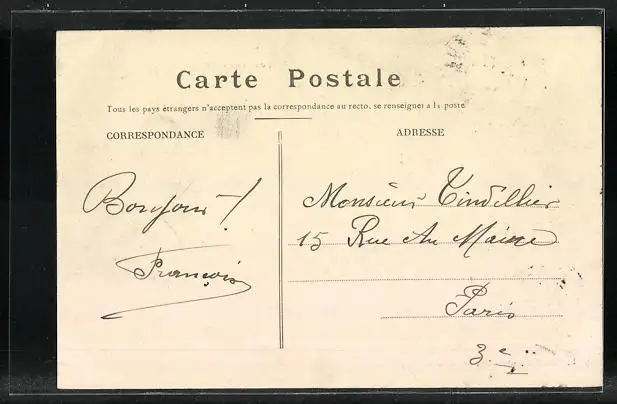 Carte Postale
Tous les pays étrangers n'acceptent pas la correspondance au recto, se renseigner à la poste
CORRESPONDANCE
ADRESSE
Bonjour!
François
Monsieur Tindillier
15 Rue du Maine
Paris
3e